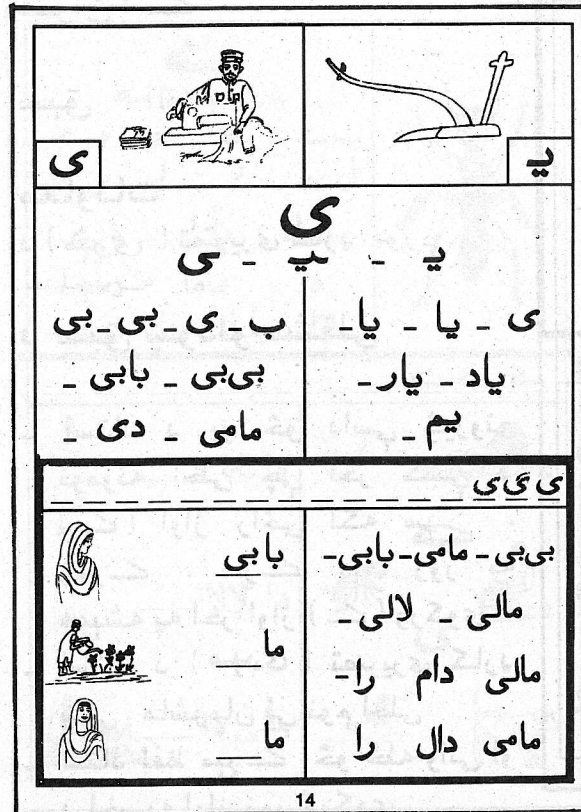 یـ
ی
ی
یـ ـ ـیـ ـ ـی
ی ـ یا ـ یا ـ
یاد ـ یار ـ
یم ـ
ب ـ ی ـ بی ـ بی
بی‌بی ـ بابی ـ
مامی ـ دی ـ
ی گ ی
بی‌بی ـ مامی ـ بابی ـ
مالی ـ لالی ـ
مالی دام را ـ
مامی دال را
بابی
ما __
ما __
14